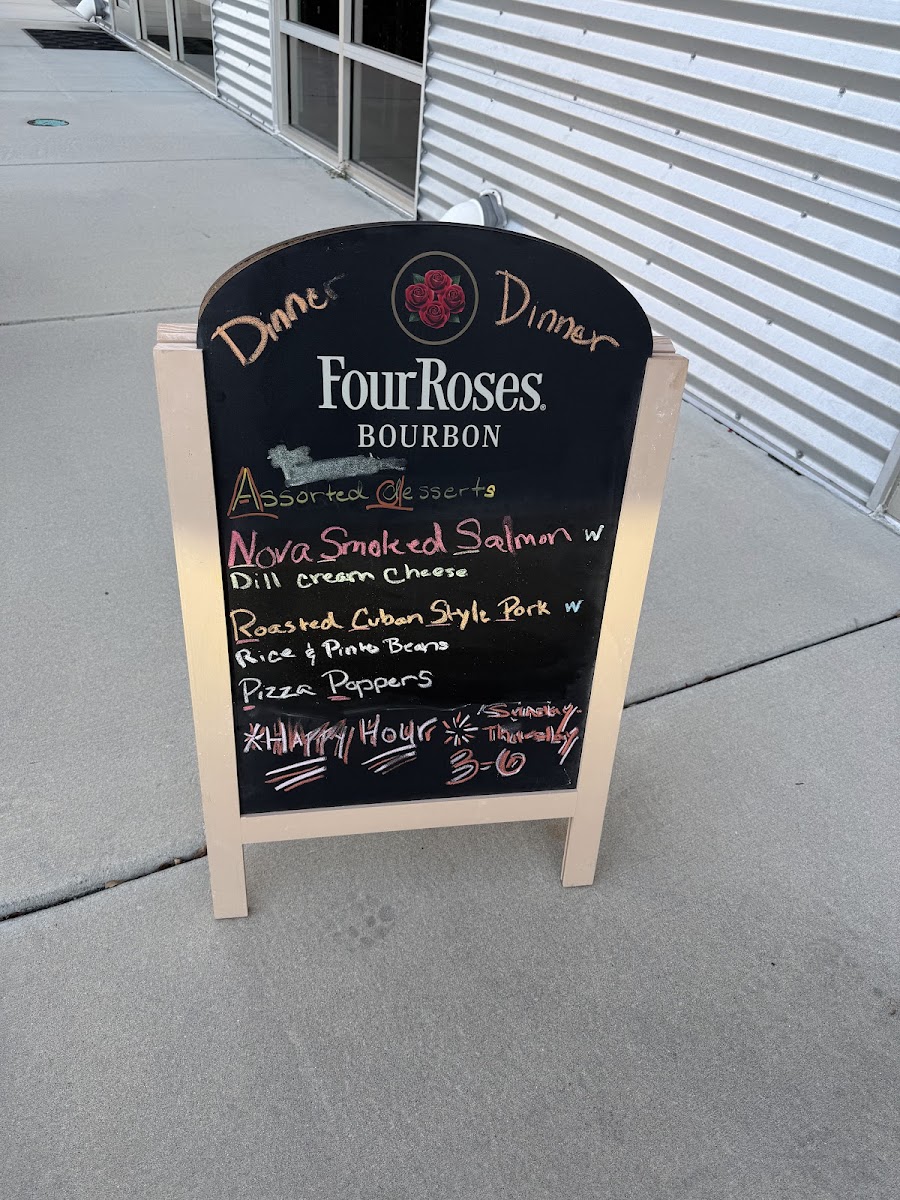 Dinner Dinner
Four Roses
BOURBON
Assorted desserts
Nova Smoked Salmon w
Dill cream Cheese
Roasted Cuban Style Pork w
Rice & Pinto Beans
Pizza Poppers
*HAPPY Hour* Sunday-
Thursday
3-6